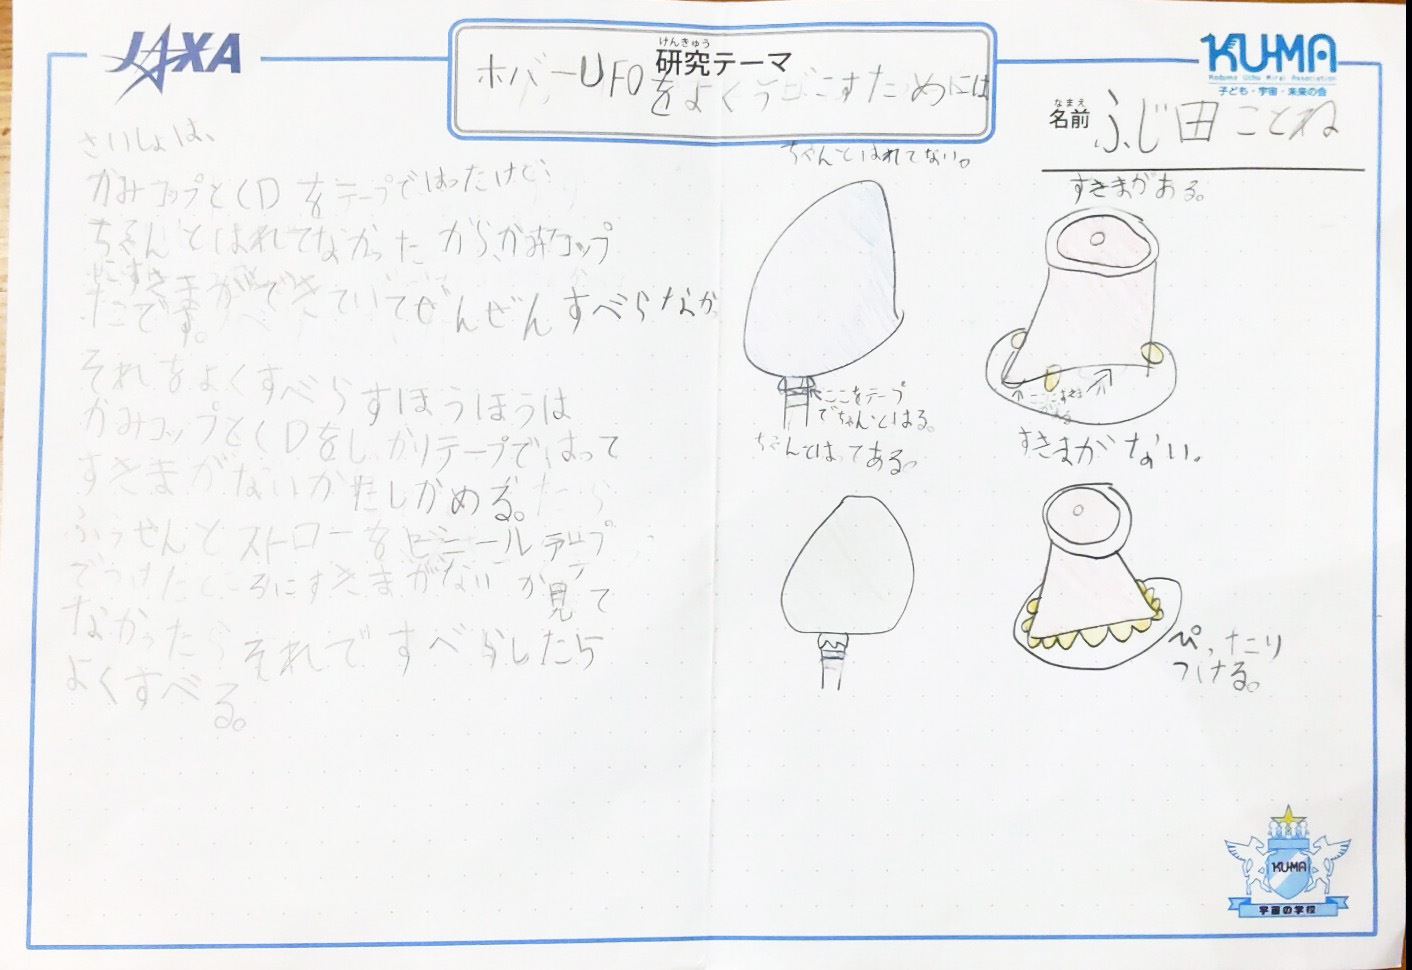 JAXA
けんきゅう
研究テーマ
ホバーUFOをよくうごこすためには
KU-MA
Kodomo Uchu Mirai Association
子ども・宇宙・未来の会
なまえ
名前
ふじ田ことね
さいしょは、
かみコップとCDをテープではったけど、
ちゃんとはれてなかったからかみコップ
にすきまができていてぜんぜんすべらなかっ
たです。
それをよくすべらすほうほうは
かみコップとCDをしっかりテープではって
すきまがないかたしかめる。たら
ふうせんとストローをビニールテープ
でつけたところにすきまがないか見て
なかったらそれですべらしたら
よくすべる。
ちゃんとはれてない。
ここをテープ
でちゃんとはる。
ちゃんとはってある。
すきまがある。
すきまがない。
ぴったり
つける。
KU-MA
宇宙の学校